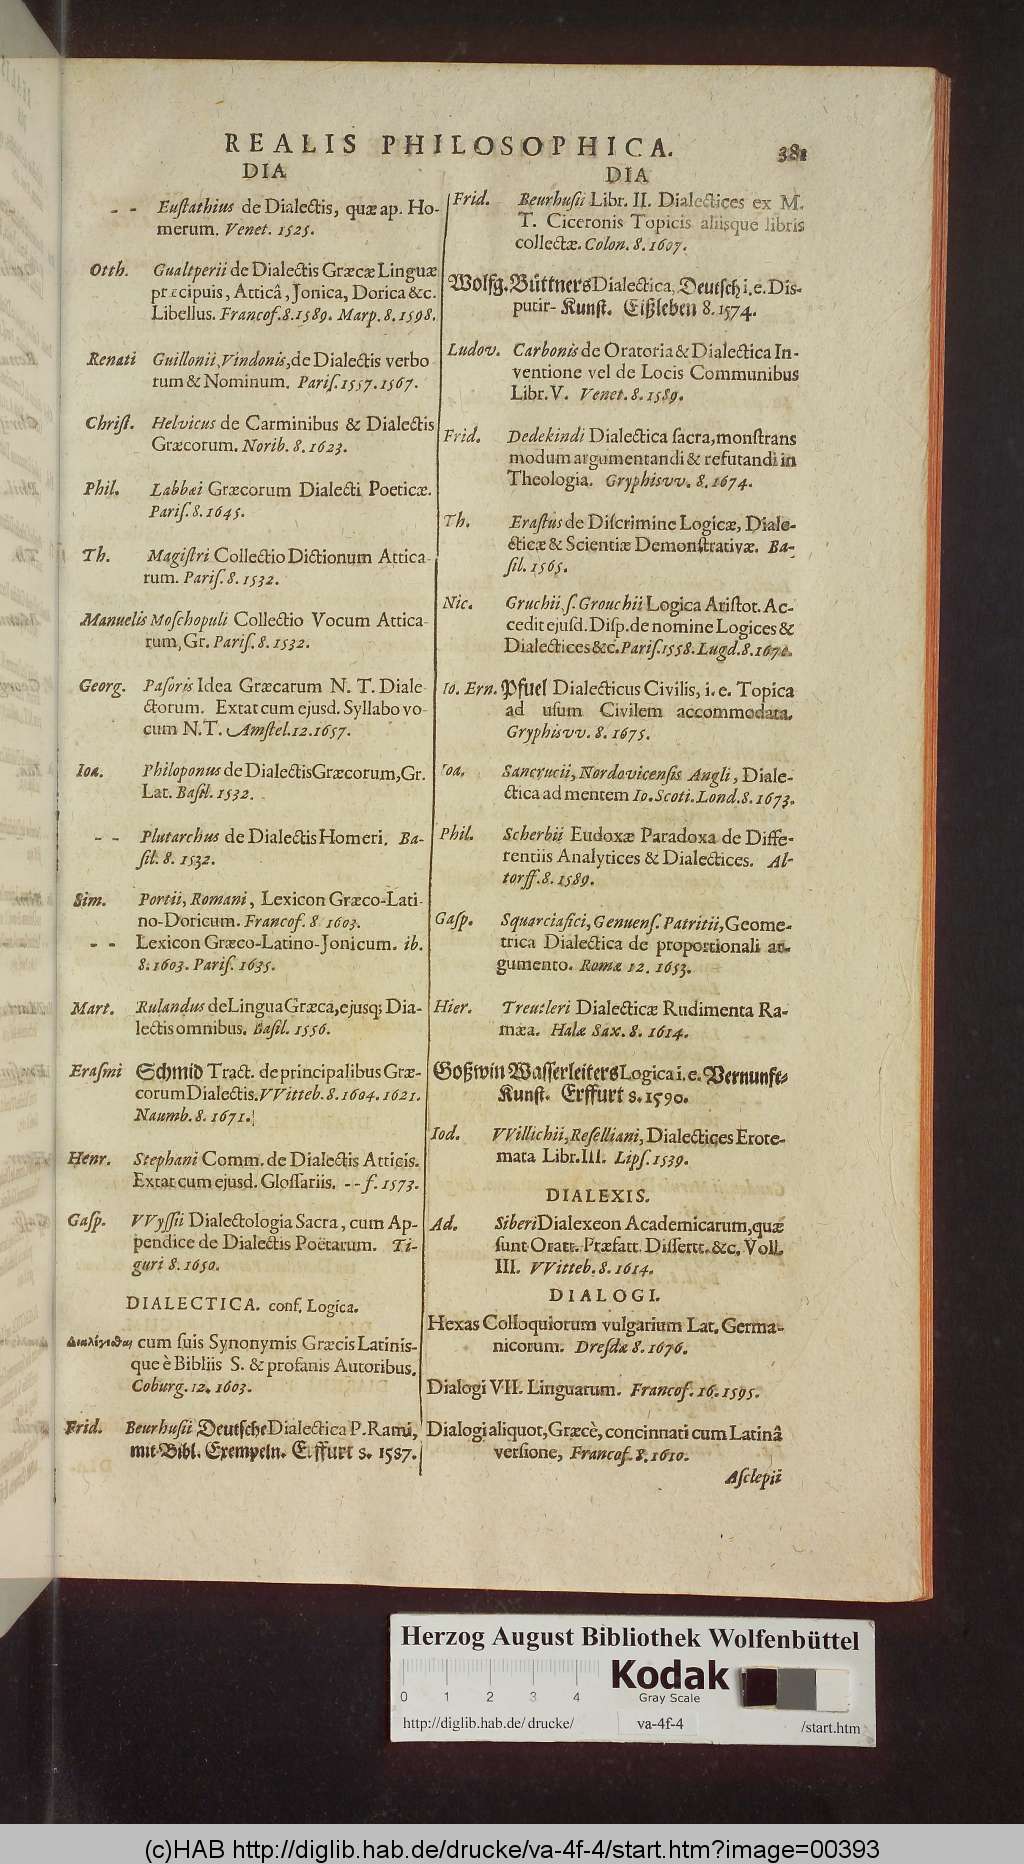 REALIS PHILOSOPHICA. 381
DIA
- - Euſtathius de Dialectis, quæ ap. Ho-
merum. Venet. 1525.
Otth. Gualtperii de Dialectis Græcæ Linguæ
præcipuis, Atticâ, Jonica, Dorica &c.
Libellus. Francof. 8. 1589. Marp. 8. 1598.
Renati Guillonii, Vindonis, de Dialectis verbo
rum & Nominum. Pariſ. 1557. 1567.
Chriſt. Helvicus de Carminibus & Dialectis
Græcorum. Norib. 8. 1623.
Phil. Labbæi Græcorum Dialecti Poeticæ.
Pariſ. 8. 1645.
Th. Magiſtri Collectio Dictionum Attica-
rum. Pariſ. 8. 1532.
Manuelis Moſchopuli Collectio Vocum Attica-
rum, Gr. Pariſ. 8. 1532.
Georg. Paſoris Idea Græcarum N. T. Diale-
ctorum. Extat cum ejusd. Syllabo vo-
cum N. T. Amſtel. 12. 1657.
Ioa. Philoponus de Dialectis Græcorum, Gr.
Lat. Baſil. 1532.
- - Plutarchus de Dialectis Homeri. Ba-
ſil. 8. 1532.
Sim. Portii, Romani, Lexicon Græco-Lati-
no-Doricum. Francof. 8 1603.
- - Lexicon Græco-Latino-Jonicum. ib.
8. 1603. Pariſ. 1635.
Mart. Rulandus de Lingua Græca, ejusq; Dia-
lectis omnibus. Baſil. 1556.
Eraſmi Schmid Tract. de principalibus Græ-
corum Dialectis. VVitteb. 8. 1604. 1621.
Naumb. 8. 1671.
Henr. Stephani Comm. de Dialectis Atticis.
Extat cum ejusd. Gloſſariis. - - f. 1573.
Gaſp. VVyſſii Dialectologia Sacra, cum Ap-
pendice de Dialectis Poëtarum. Ti-
guri 8. 1650.
DIALECTICA. conf. Logica.
Διαλέγεσθαι cum ſuis Synonymis Græcis Latinis-
que è Bibliis S. & profanis Autoribus.
Coburg. 12. 1603.
Frid. Beurhuſii Deutſche Dialectica P. Rami,
mit Bibl. Exempeln. Erffurt 8. 1587.
DIA
Frid. Beurhuſii Libr. II. Dialectices ex M.
T. Ciceronis Topicis aliisque libris
collectæ. Colon. 8. 1607.
Wolfg. Büttners Dialectica, Deutſch i. e. Dis-
putir-Kunſt. Eißleben 8. 1574.
Ludov. Carbonis de Oratoria & Dialectica In-
ventione vel de Locis Communibus
Libr. V. Venet. 8. 1589.
Frid. Dedekindi Dialectica ſacra, monſtrans
modum argumentandi & refutandi in
Theologia. Gryphisvv. 8. 1674.
Th. Eraſtus de Diſcrimine Logicæ, Diale-
cticæ & Scientiæ Demonſtrativæ. Ba-
ſil. 1565.
Nic. Gruchii ſ. Grouchii Logica Ariſtot. Ac-
cedit ejuſd. Diſp. de nomine Logices &
Dialectices &c. Pariſ. 1558. Lugd. 8.
Io. Ern. Pfuel Dialecticus Civilis, i. e. Topica
ad uſum Civilem accommodata.
Gryphisvv. 8. 1675.
Ioa. Sancrucii, Nordovicenſis Angli, Diale-
ctica ad mentem Io. Scoti. Lond. 8. 1673.
Phil. Scherbii Eudoxæ Paradoxa de Diffe-
rentiis Analytices & Dialectices. Al-
torff. 8. 1589.
Gaſp. Squarciafici, Genuenſ. Patritii, Geome-
trica Dialectica de proportionali ar-
gumento. Romæ 12. 1653.
Hier. Treutleri Dialecticæ Rudimenta Ra-
mæa. Halæ Sax. 8. 1614.
Goßwin Waſſerleiters Logica i. e. Vernunft-
Kunſt. Erffurt 8. 1590.
Iod. VVillichii, Reſelliani, Dialectices Erote-
mata Libr. III. Lipſ. 1539.
DIALEXIS.
Ad. Siberi Dialexeon Academicarum, quæ
ſunt Oratt. Præfatt. Diſſertt. &c. Voll.
III. VVitteb. 8. 1614.
DIALOGI.
Hexas Colloquiorum vulgarium Lat. Germa-
nicorum. Dreſdæ 8. 1676.
Dialogi VII. Linguarum. Francof. 16. 1595.
Dialogi aliquot, Græcè, concinnati cum Latinâ
verſione, Francof. 8. 1610.
Aſclepii
Herzog August Bibliothek Wolfenbüttel
0 1 2 3 4
Kodak
Gray Scale
http://diglib.hab.de/drucke/ va-4f-4 /start.htm
(c)HAB http://diglib.hab.de/drucke/va-4f-4/start.htm?image=00393